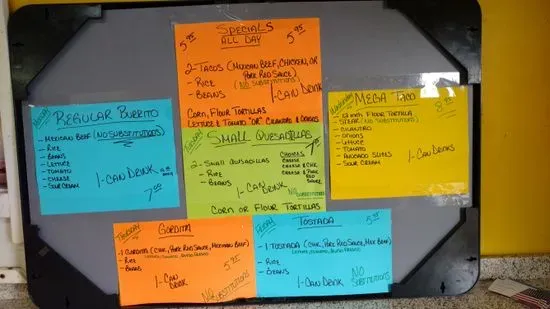 Specials
All Day
5.95
5.95
2-Tacos (Mexican Beef, Chicken, or
Pork Red Sauce)
-Rice (No Substitutions)
-Beans
1-Can Drink
Corn, Flour Tortillas
Lettuce & Tomato "Or" Cilantro & Onions
Monday
Regular Burrito
-Mexican Beef (No Substitutions)
-Rice
-Beans
-Lettuce
-Tomato
-Cheese
-Sour Cream
1-Can Drink
7.00
Tuesday
Small Quesadillas
2-Small Quesadillas
-Rice
-Beans
Choices
Cheese
Cheese & Chk
Cheese & Pork
Red
Sauce
1-Can Drink
No
Substitutions
Corn or Flour Tortillas
Wednesday
Mega Taco
-12 inch Flour Tortilla
-Steak (No Substitutions)
-Cilantro
-Onions
-Lettuce
-Tomato
-Avocado Slices
-Sour Cream
1-Can Drinks
Thursday
Gordita
1 Gordita (Chk, Pork Red Sauce, Mexican Beef)
-Rice
-Beans
5.95
1-Can
Drink
No
Substitutions
Friday
Tostada
5.95
-1 Tostada (Chk, Pork Red Sauce, Mex Beef)
-Rice
-Beans
1-Can Drink
No
Substitutions